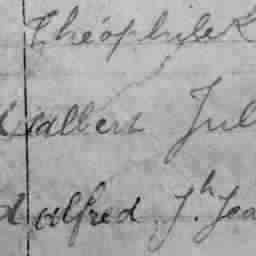 Théophile K
d adalbert Jul
d alfred J.h Jea